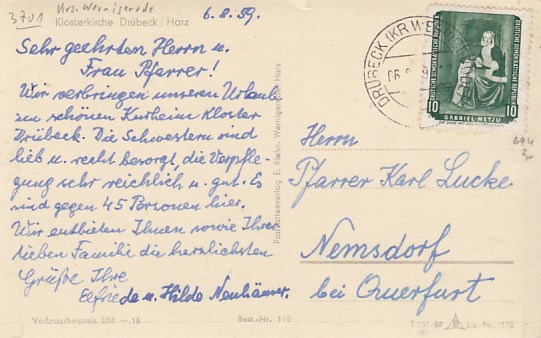 3701
Krs. Wernigerode
Klosterkirche Drübeck / Harz
6.8.59.
Sehr geehrten Herrn u.
Frau Pfarrer!
Wir verbringen unseren Urlaub
im schönen Kurheim Kloster
Drübeck. Die Schwestern sind
lieb u. recht besorgt, die Verpfle-
gung sehr reichlich u. gut. Es
sind gegen 45 Personen hier.
Wir entbieten Ihnen sowie Ihrer
lieben Familie die herzlichsten
Grüße Ihre
Elfriede u. Hilde Neuhäuser.
Verbraucherpreis DM —.15
Best.-Nr. 155
Postkartenverlag E. Riehn, Wernigerode Harz
DRÜBECK (KR WERNI
DEUTSCHE DEMOKRATISCHE REPUBLIK
10 GABRIEL METSU 10
Herrn
Pfarrer Karl Lucke
Nemsdorf
bei Querfurt